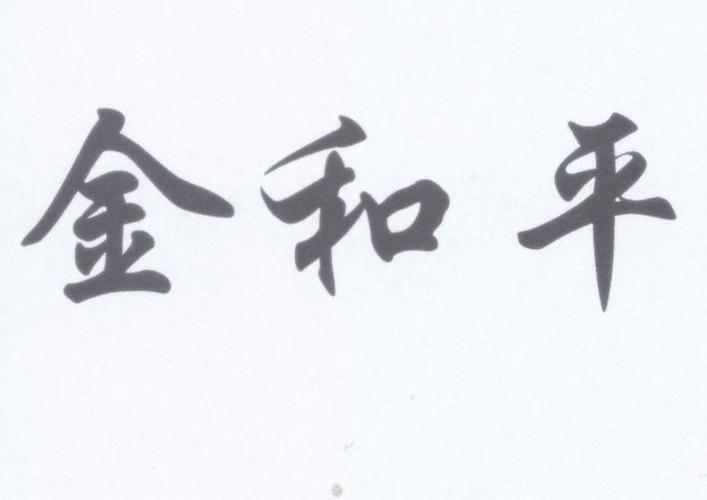 金和平